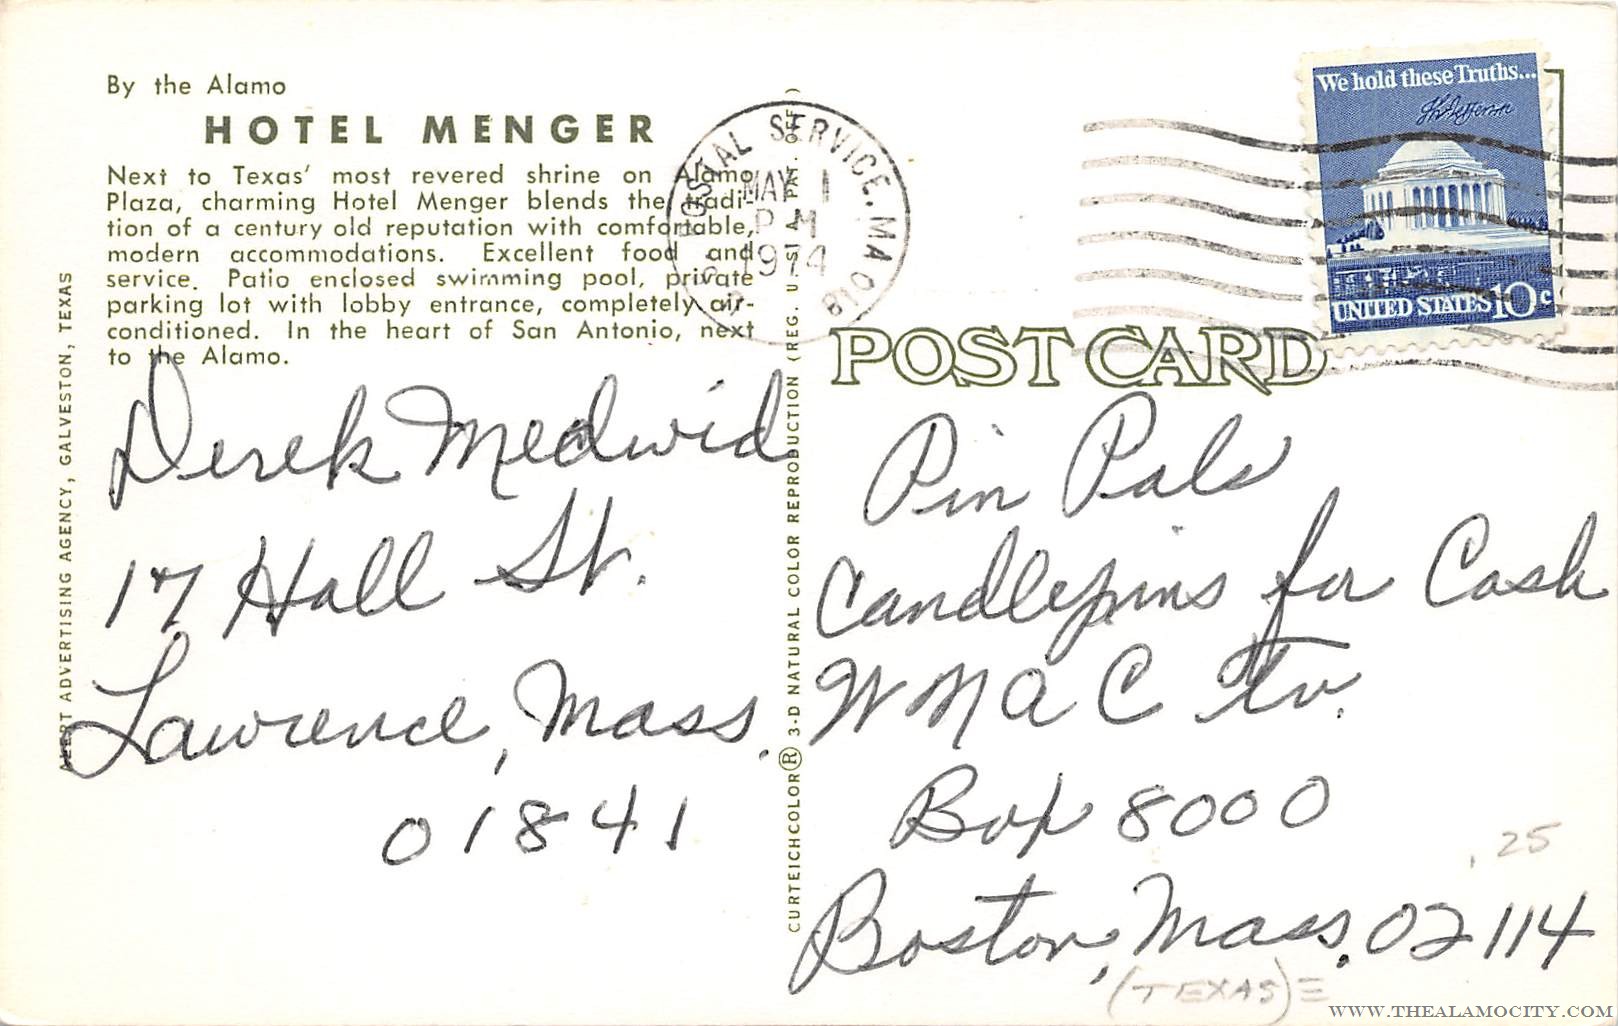 By the Alamo
HOTEL MENGER
Next to Texas' most revered shrine on Alamo
Plaza, charming Hotel Menger blends the tradi-
tion of a century old reputation with comfortable,
modern accommodations. Excellent food and
service. Patio enclosed swimming pool, private
parking lot with lobby entrance, completely air-
conditioned. In the heart of San Antonio, next
to the Alamo.
Derek Medwid
17 Hall St.
Lawrence, Mass.
01841
ALERT ADVERTISING AGENCY, GALVESTON, TEXAS
CURTEICHCOLOR® 3-D NATURAL COLOR REPRODUCTION (REG. U.S.A. PAT. OFF.)
U.S. POSTAL SERVICE, MA 018
MAY 1
PM
1974
We hold these Truths...
Th Jefferson
UNITED STATES 10c
POST CARD
Pin Pals
Candlepins for Cash
WNAC Tv.
Box 8000
Boston, Mass. 02114
.25
(TEXAS)
WWW.THEALAMOCITY.COM